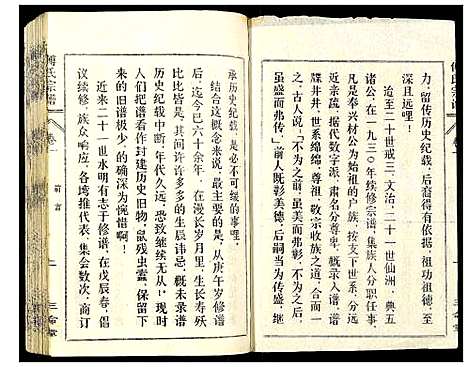 力，留传历史纪载，后裔得有依据，祖功祖德，至
深且远哩！
迨至二十世戒三、文治，二十一世仙洲、典五
诸公，在一九三〇年续修宗谱，集族人分职任事，
凡是奉兴材公为始祖的户族，按支下世系，远
近亲疏，据代数字派，肃名分尊卑，概录入谱，谱
牒井井，世系绵绵，尊祖敬宗收族之道，合而具
之。古人说：「不为之前，虽美而弗彰，不为之后，
虽盛而弗传。」前人既彰美德，后嗣当为传盛，继
承历史纪载，是必不可缓的事哩。
按一般概念来说，最主要的是，从庚午岁修谱
后，迄今已六十余年，在漫长岁月里，生长寿殁，
比比皆是，其间许许多多的生辰讳忌，概未录谱，
历史纪载中断，年代久远，恐致继续无从！现时
人们把一些着作封建历史旧物，鼠残虫蠹，保留下
来的旧谱极少，的确深为惋惜啊！
近来二十一世水明有志于修谱，在戊辰春，倡
议续修，族众响应，各塆推代表，集会数次，商订
傅氏宗谱
卷一
前言